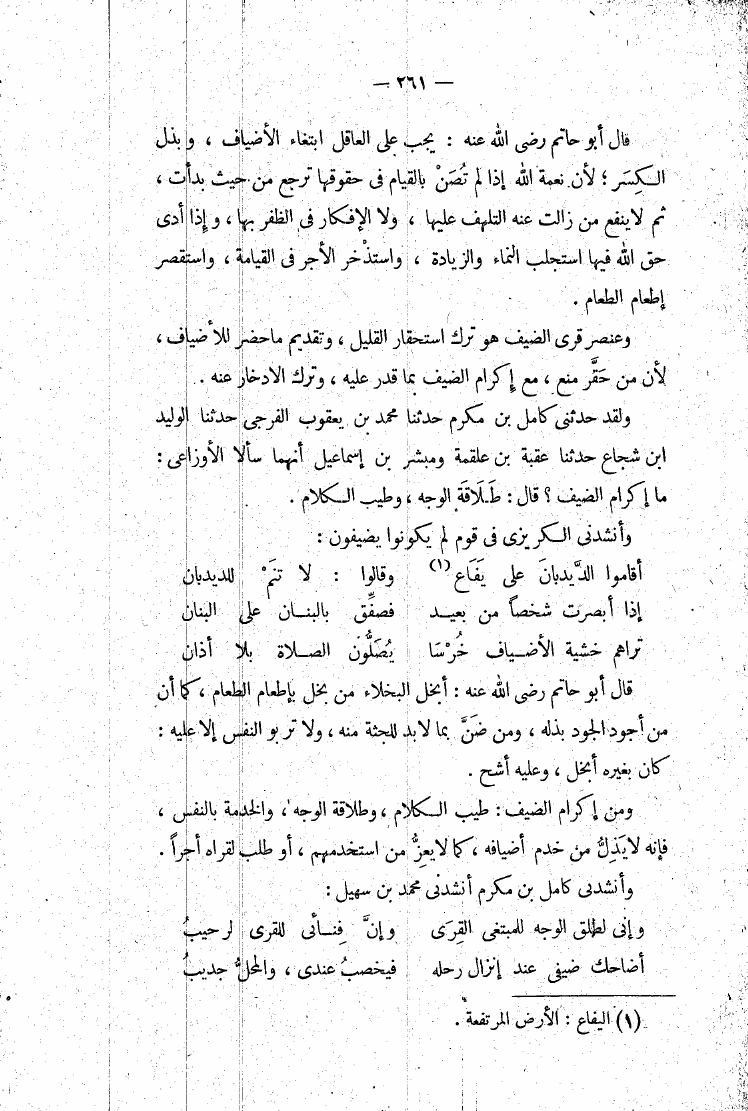 — ٢٦١ —
قال أبو حاتم رضى الله عنه : يجب على العاقل ابتغاء الأضياف ، وبذل
الكِسَر ؛ لأن نعمة الله إذا لم تُصَنْ بالقيام فى حقوقها ترجع من حيث بدأت ،
ثم لاينفع من زالت عنه التلهف عليها ، ولا الإفكار فى الظفر بها ، وإذا أدى
حق الله فيها استجلب النماء والزيادة ، واستذْخر الأجر فى القيامة ، واستقصر
إطعام الطعام .
وعنصر قرى الضيف هو ترك استحقار القليل ، وتقديم ماحضر للأضياف ،
لأن من حَقَّر منع ، مع إكرام الضيف بما قدر عليه ، وترك الادخار عنه .
ولقد حدثنى كامل بن مكرم حدثنا محمد بن يعقوب الفرجى حدثنا الوليد
ابن شجاع حدثنا عقبة بن علقمة ومبشر بن إسماعيل أنهما سألا الأوزاعى :
ما إكرام الضيف ؟ قال : طَلَاقَة الوجه ، وطيب الكلام .
وأنشدنى الكريزى فى قوم لم يكونوا يضيفون :
أقاموا الدَّيدبانَ على يَفَاع (١) وقالوا : لا تنَمْ للديدبان
إذا أبصرت شخصاً من بعيد فصفِّق بالبنان على البنان
تراهم خشية الأضياف خُرْسَا يُصَلُّون الصلاة بلا أذان
قال أبو حاتم رضى الله عنه : أبخل البخلاء من بخل بإطعام الطعام ، كما أن
من أجود الجود بذله ، ومن ضَنَّ بما لابد للجثة منه ، ولا تربو النفس إلا عليه :
كان بغيره أبخل ، وعليه أشح .
ومن إكرام الضيف : طيب الكلام ، وطلاقة الوجه ، والخدمة بالنفس ،
فإنه لايَذِلُّ من خدم أضيافه ، كما لايعزُّ من استخدمهم ، أو طلب لقراه أجراً .
وأنشدنى كامل بن مكرم أنشدنى محمد بن سهيل :
وإنى لطلق الوجه للمبتغى القِرَى وإنَّ فِنائى للقرى لرحيبُ
أضاحك ضيفى عند إنزال رحله فيخصبُ عندى ، والمحلُّ جديبُ
(١) اليفاع : الأرض المرتفعة .